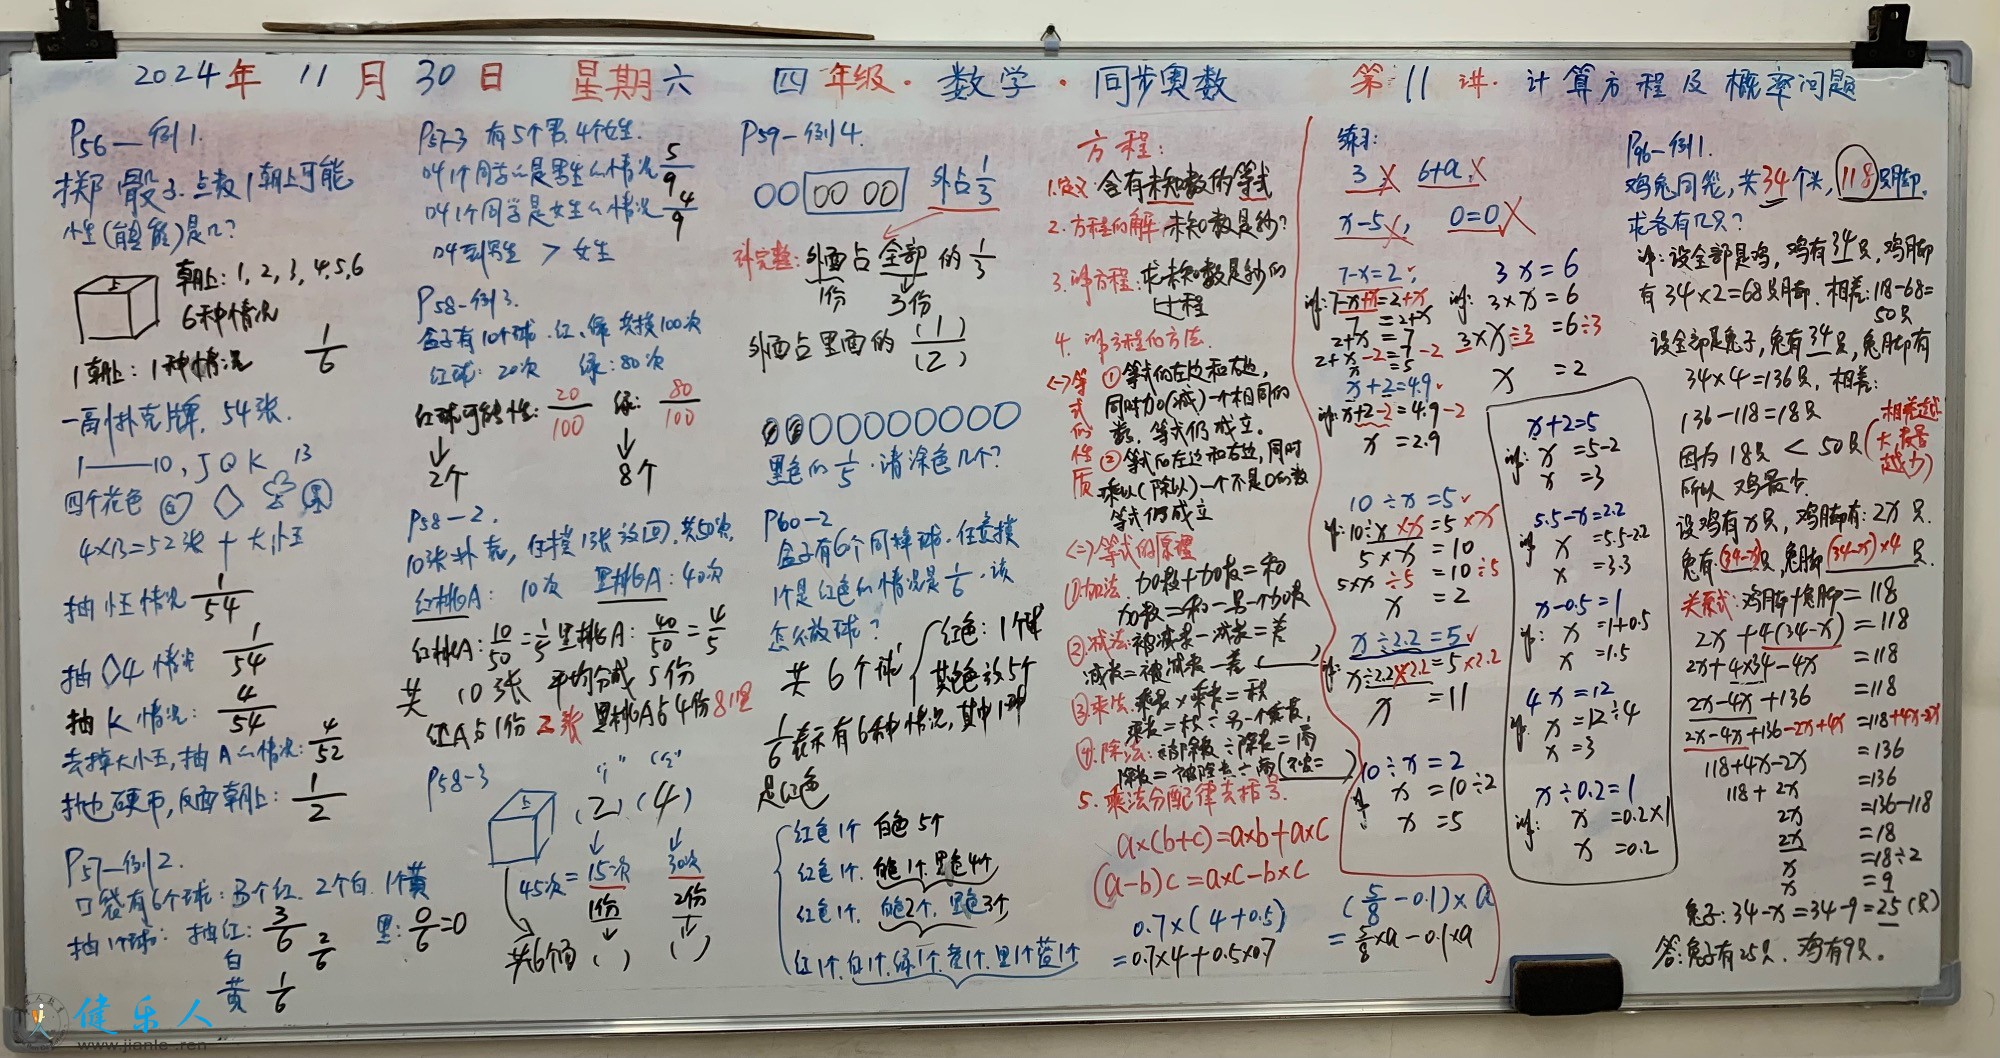 2024年 11月 30日 星期六 四年级·数学·同步奥数 第11讲·计算方程及概率问题
P56—例1.
掷骰子.点数1朝上可能
性(能)是几?
上
朝上:1,2,3,4,5,6
6种情况
1朝上:1种情况 1/6
一副扑克牌,54张.
1——10,J Q K 13
四个花色
4×13=52张+大小王
抽小王情况 1/54
抽◇4情况 1/54
抽K情况: 4/54
去掉大小王,抽A的情况: 4/52
抛硬币,反面朝上: 1/2
P57—例2.
口袋有6个球:3个红.2个白.1个黄
抽1个球:抽红: 3/6 黑: 0/6=0
白 2/6
黄 1/6
P57-3 有5个男.4个女生.
叫1个同学是男生的情况 5/9
叫1个同学是女生的情况 4/9
叫到男生 > 女生
P58-例3.
盒子有10个球.红、绿 共摸100次
红球:20次 绿:80次
红球可能性: 20/100 绿: 80/100
↓ ↓
2个 8个
P58-2.
10张扑克,任摸1张放回,共50次,
红桃A: 10次 黑桃A:40次
红桃A: 10/50=1/5 黑桃A: 40/50=4/5
共 10张 平均分成 5份
红A占1份 2张 黑桃A占4份
P58-3
上
(2) (4)
↓ ↓
45次= 15次 30次
1份 2份
↓ ↓
共6个面 ( ) ( )
P59-例4.
外占 1/3
补完整:外面占全部的 1/3
1份 3份
外面占里面的 (1)/(2)
黑色的 1/5.请涂色几个?
P60-2
盒子有6个同样球.任意摸
1个是红色的情况是 1/6.该
怎么放球?
共 6个球 红色:1个球
其他色放5个
1/6表示有6种情况,其中1种
是红色
红色1个 白色5个
红色1个. 白色1个.黑色4个
红色1个. 白色2个.黑色3个
红1个.白1个.绿1个.黄1个.黑1个蓝1个
方程:
1.定义 含有未知数的等式
2.方程的解:未知数是多少?
3.解方程:求未知数是多少的
过程
4.解方程的方法.
<一>等式的性质
①等式的左边和右边,
同时加(减)一个相同的
数,等式仍成立.
②等式的左边和右边,同时
乘以(除以)一个不是0的数
等式仍成立
<二>等式的原理
①加法 加数+加数=和
加数=和-另一个加数
②减法:被减数-减数=差
减数=被减数-差( )
③乘法:乘数×乘数=积
乘数=积÷另一个乘数,
④除法:被除数÷除数=商
除数=被除数÷商
5.乘法分配律去括号.
a×(b+c)=a×b+a×c
(a-b)c=a×c-b×c
0.7×(4+0.5)
=0.7×4+0.5×0.7
练习:
3 × 6+a ×
x-5 ×, 0=0 ×
7-x=2✓
解:7-x+x=2+x
7=2+x
2+x=7
2+x-2=7-2
x=5
3x=6
解:3×x=6
3×x÷3=6÷3
x=2
x+2=4.9✓
解:x+2-2=4.9-2
x=2.9
10÷x=5✓
解:10÷x×x=5×x
5×x=10
5×x÷5=10÷5
x=2
x÷2.2=5✓
解:x÷2.2×2.2=5×2.2
x=11
10÷x=2
解 x=10÷2
x=5
(5/8-0.1)×a
=5/8×a-0.1×a
x+2=5
解:x=5-2
x=3
5.5-x=2.2
解 x=5.5-2.2
x=3.3
x-0.5=1
解:x=1+0.5
x=1.5
4x=12
解.x=12÷4
x=3
x÷0.2=1
解:x=0.2×1
x=0.2
P96-例1.
鸡兔同笼,共34个头,118只脚,
求各有几只?
解:设全部是鸡,鸡有34只,鸡脚
有34×2=68只脚.相差:118-68=
50只
设全部是兔子,兔有34只,兔脚有
34×4=136只,相差:
136-118=18只
因为 18只 < 50只(相差越大,数量越少)
所以 鸡最少.
设鸡有x只,鸡脚有:2x只.
兔有(34-x)只,兔脚(34-x)×4只.
关系式:鸡脚+兔脚=118
2x+4(34-x)=118
2x+4×34-4x=118
2x-4x+136=118
2x-4x+136-2x+4x=118+4x-2x
118+4x-2x=136
118+2x=136
2x=136-118
2x=18
x=18÷2
x=9
兔子:34-x=34-9=25(只)
答:兔子有25只,鸡有9只。
健乐人
www.jianle.ren